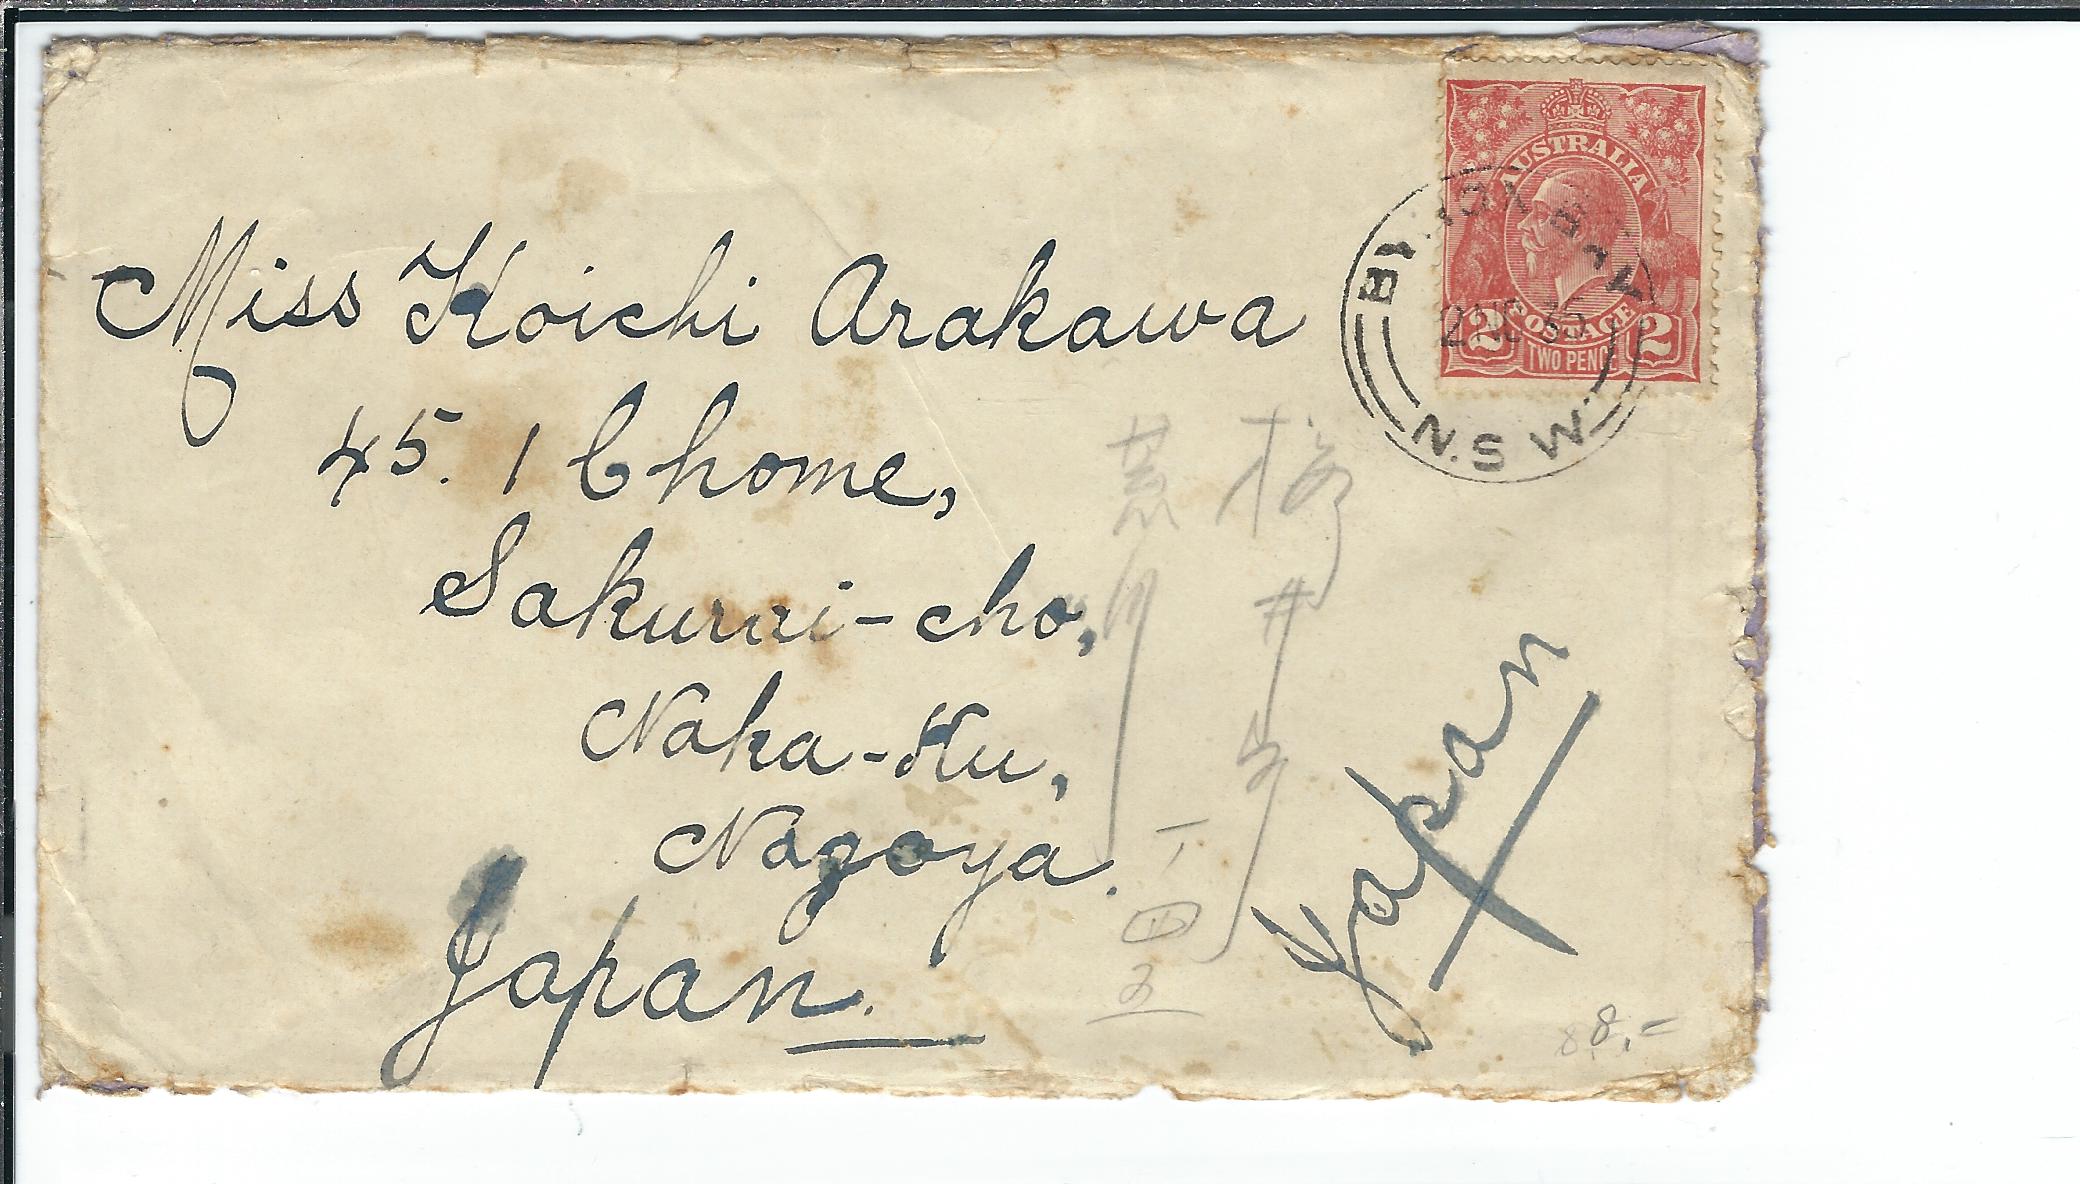 Miss Koichi Arakawa
45. 1 Chome,
Sakurai-cho,
Naka-Ku,
Nagoya.
Japan.
Japan
AUSTRALIA
POSTAGE
2 TWO PENCE 2
N.S.W.
荒川
桜井町
一丁
四五
8,=